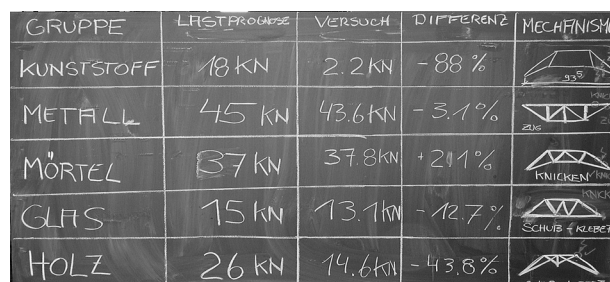 GRUPPE LASTPROGNOSE VERSUCH DIFFERENZ MECHANISM
KUNSTSTOFF 18 KN 2.2 KN -88 % 935
METALL 45 KN 43.6 KN -3.1 % ZUG
MÖRTEL 37 KN 37.8 KN +2.1 % KNICKEN
GLAS 15 KN 13.1 KN -12.7 % SCHUB-KLEBER
HOLZ 26 KN 14.6 KN -43.8 %